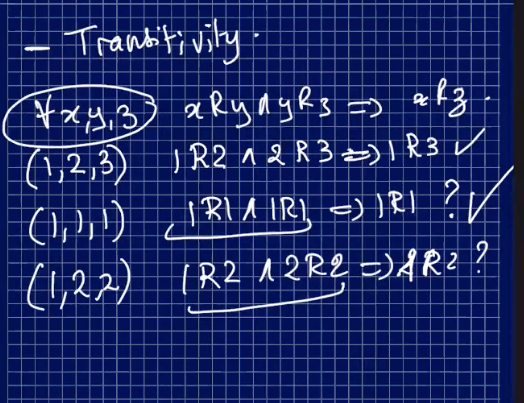 - Transitivity.
∀x,y,z xRy ∧ yRz => xRz.
(1,2,3) 1R2 ∧ 2R3 => 1R3 ✓
(1,1,1) 1R1 ∧ 1R1 => 1R1 ? ✓
(1,2,2) 1R2 ∧ 2R2 => 1R2 ?